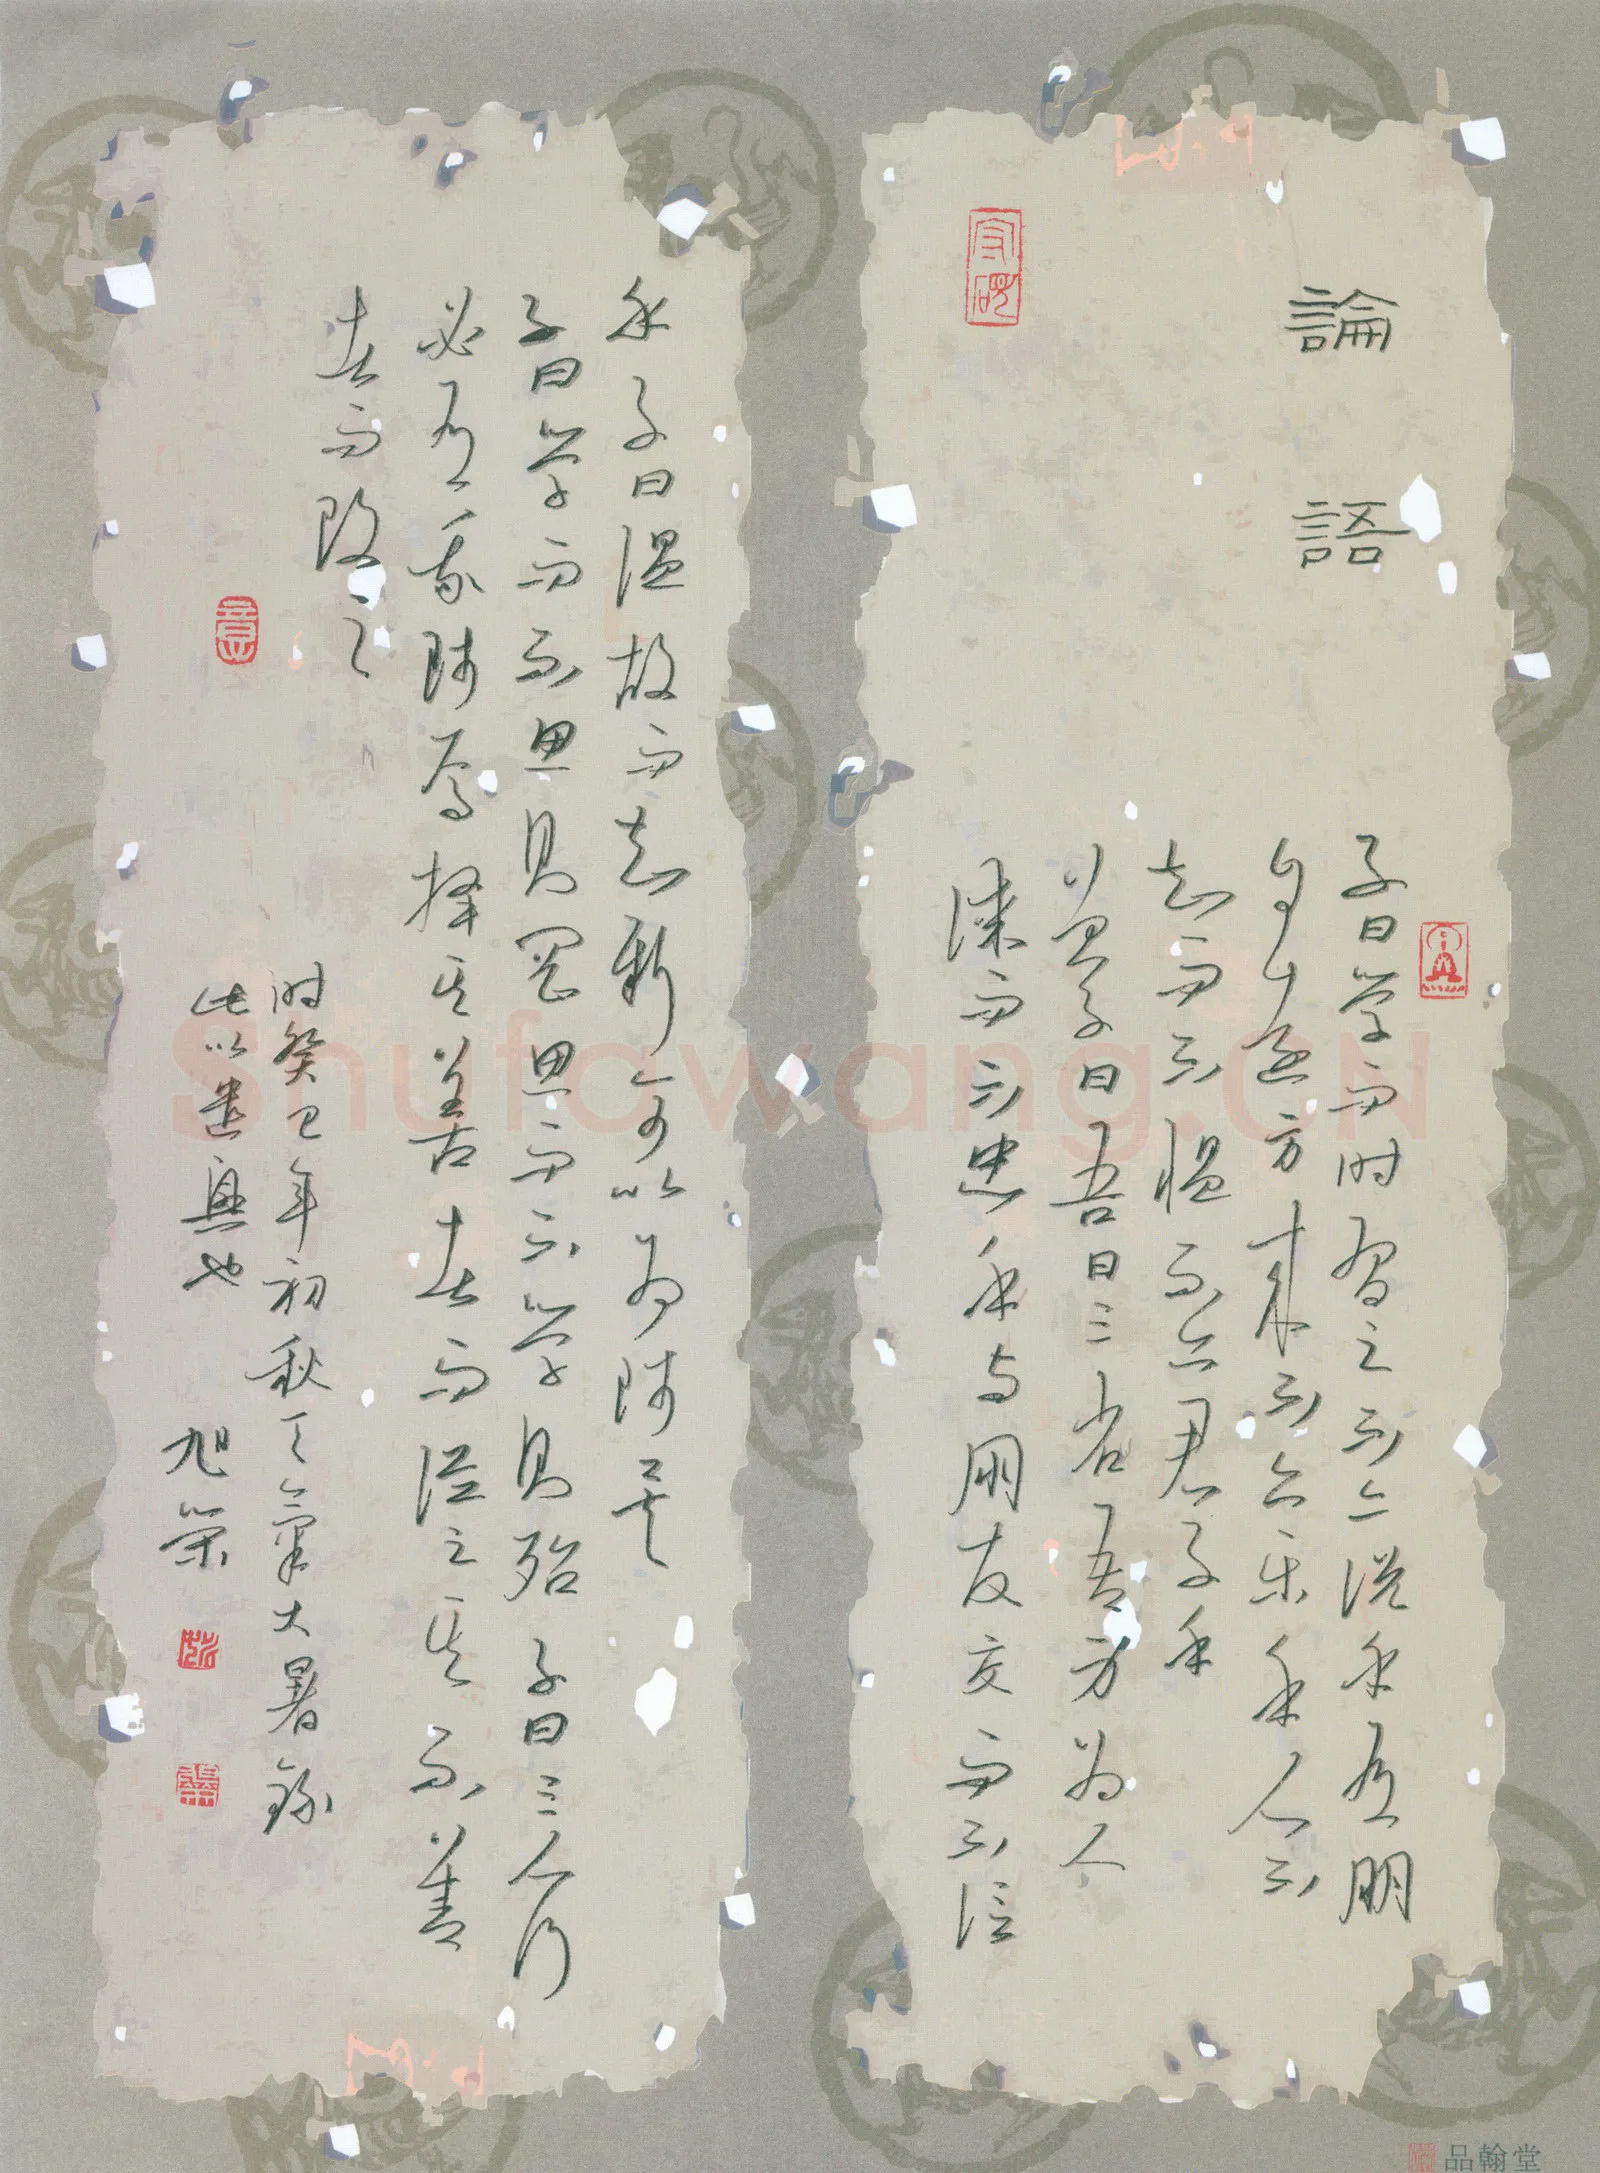 論語
子曰学而时習之不亦说乎有朋
自遠方来不亦乐乎人不
知而不愠不亦君子乎
曾子曰吾日三省吾身为人
谋而不忠乎与朋友交而不信
乎子曰温故而知新可以为师矣
子曰学而不思则罔思而不学则殆子曰三人行
必有我师焉择其善者而従之其不善
者而改之
时癸巳年初秋天氣大暑録
此以遣興也 旭
Shufawang.CN
品翰堂